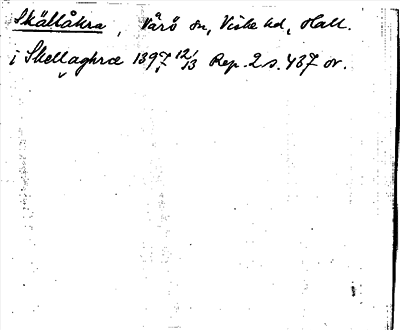 Skällåkra, Värö sn, Viske hd, Hall.
i Skellaghræ 1397 12/13 Rep. 2 s. 437 or.